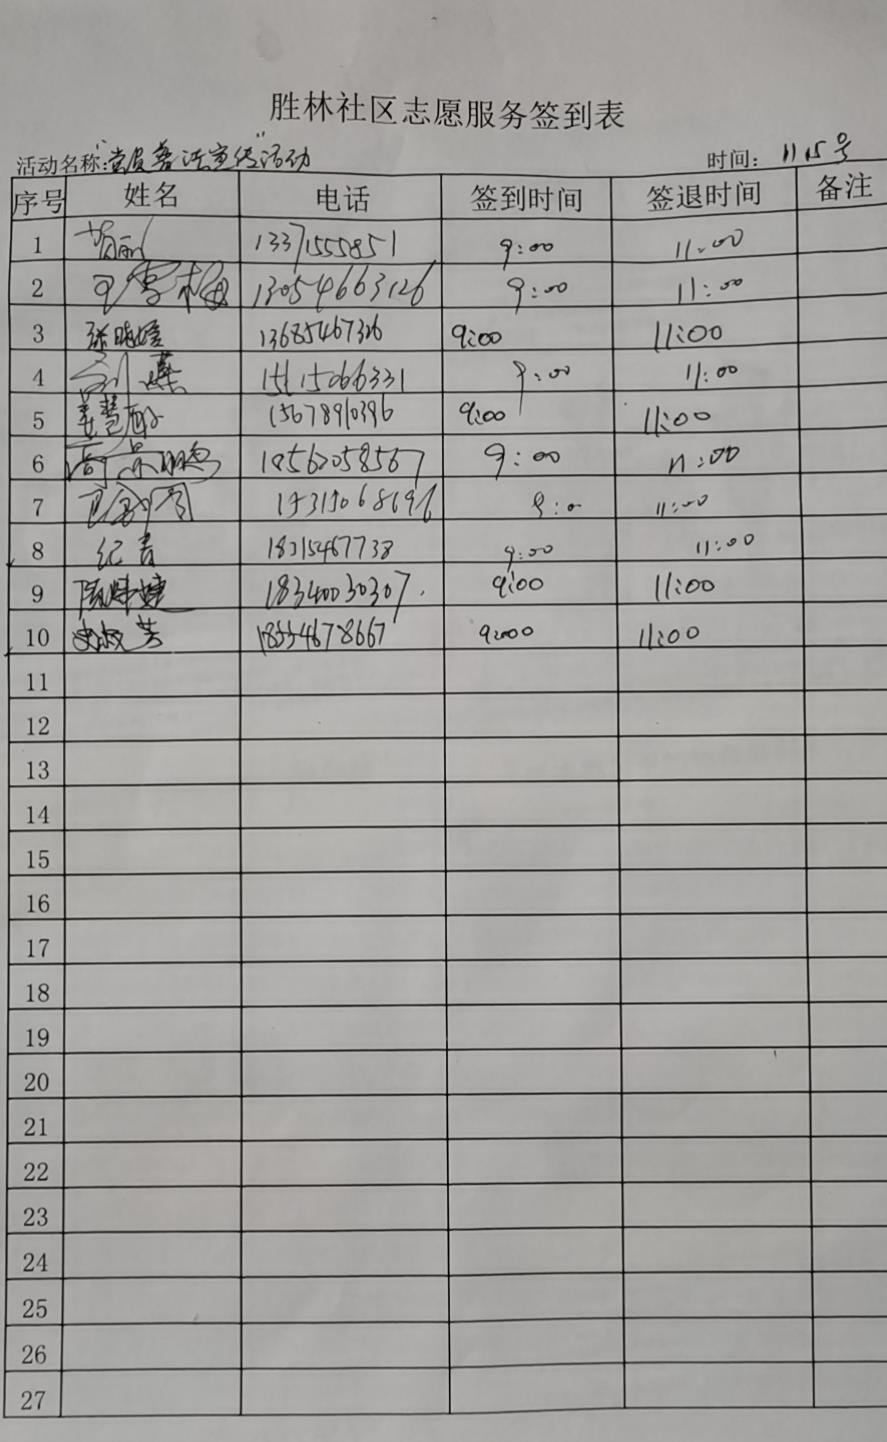 胜林社区志愿服务签到表
活动名称:"党员普法宣传"活动 时间: 11.15号
序号 姓名 电话 签到时间 签退时间 备注
1 13371555851 9:00 11:00
2 13054663126 9:00 11:00
3 张晓媛 13685467326 9:00 11:00
4 刘燕 15115066331 9:00 11:00
5 姜慧 15678910396 9:00 11:00
6 高景鹏 18562058567 9:00 11:00
7 9:0 11:00
8 纪青 18315467738 9:00 11:00
9 18340030307. 9:00 11:00
10 18554678667 9:00 11:00
11
12
13
14
15
16
17
18
19
20
21
22
23
24
25
26
27